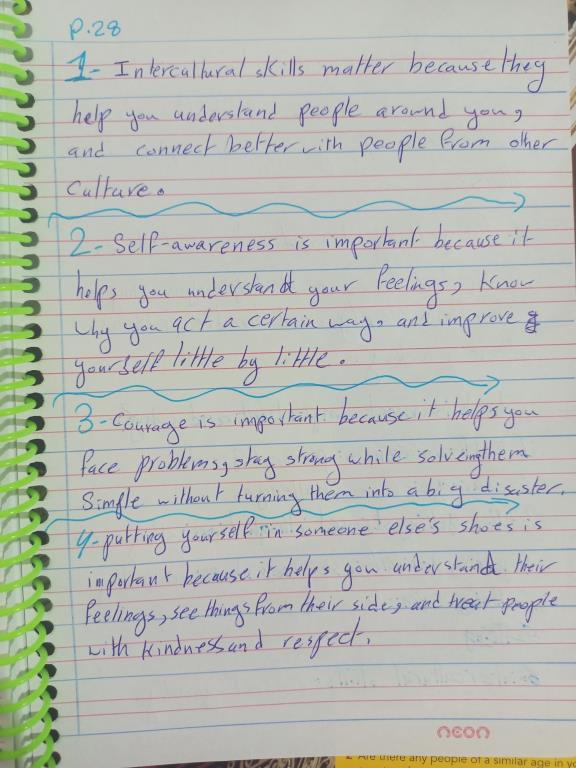 P.28
1- Intercultural skills matter because they
help you understand people around you,
and connect better with people from other
culture.
2- Self-awareness is important because it
helps you understand your feelings, know
why you act a certain way, and improve
yourself little by little.
3- Courage is important because it helps you
face problems, stay strong while solveing them
Simple without turning them into a big disuster.
4- putting yourself in someone else's shoes is
important because it helps you understand their
feelings, see things from their side, and treat people
with kindness and respect.
neon
2 Are there any people of a similar age in yo